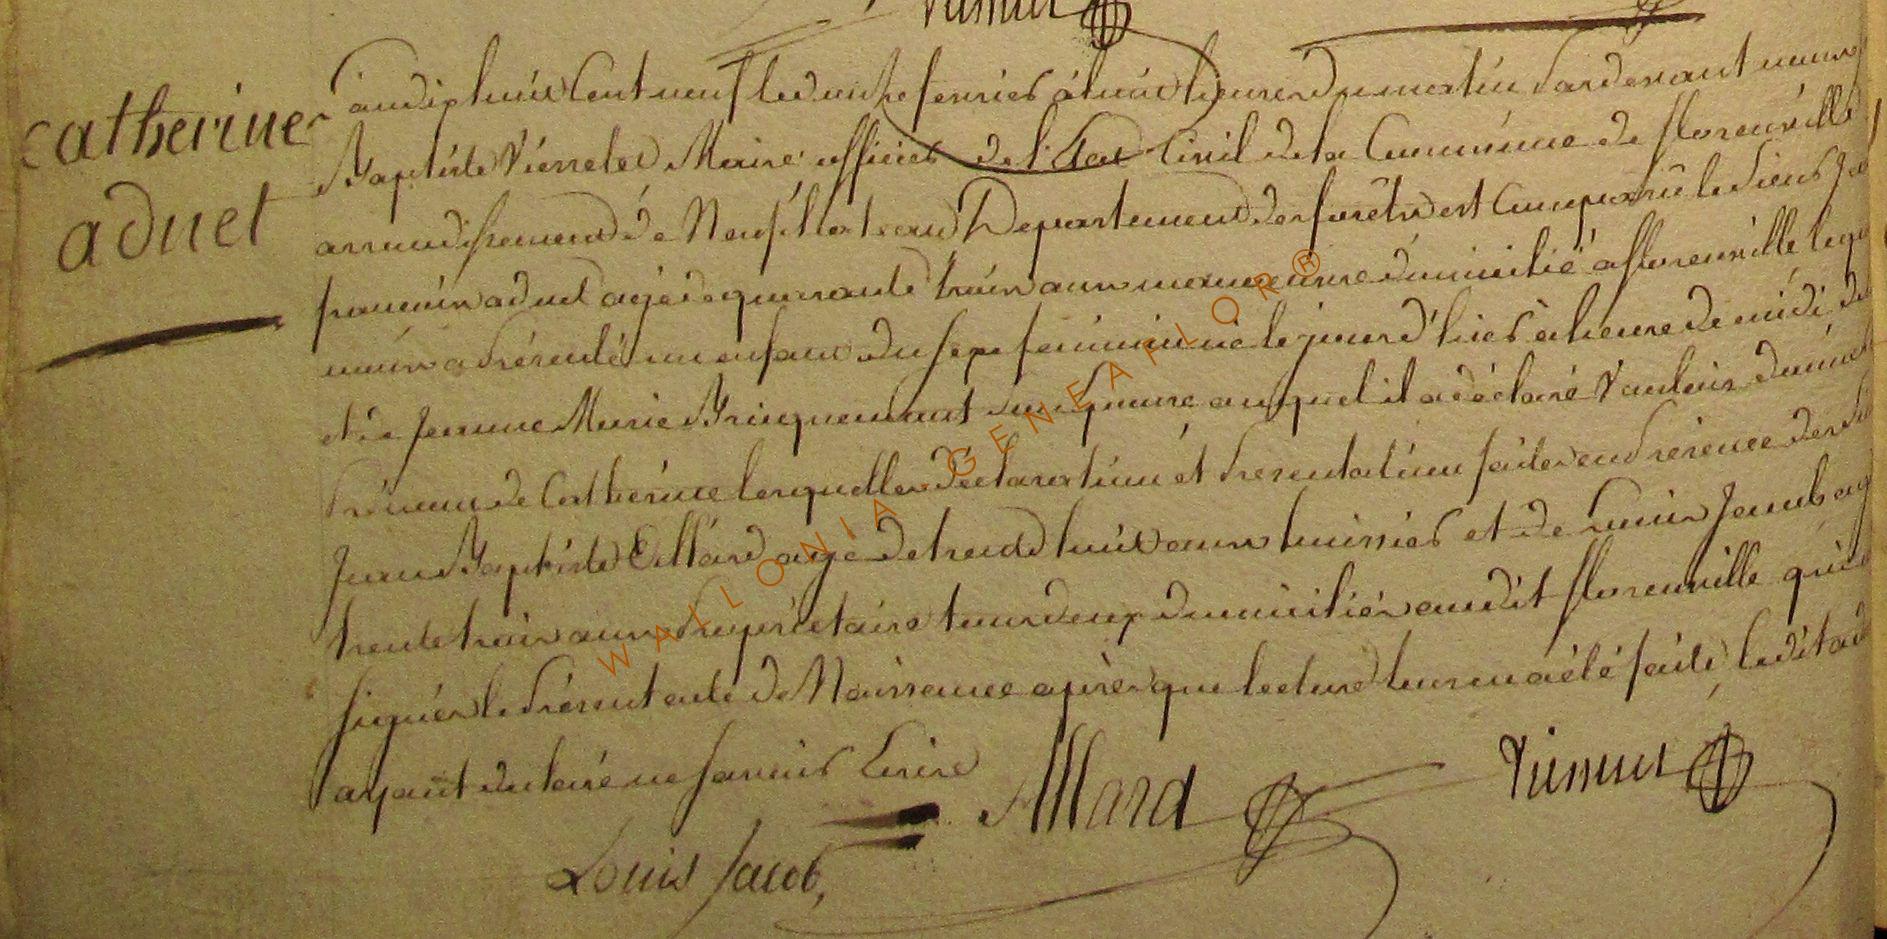 Catherine
aduet
L'an dix huit Cent neuf le du de fevrier à huit heures du matin Pardevant nous
Baptiste Maire officier de l'Etat Civil de la Commune de florenville
arrondissement de Neufchateau Departement des forêts est Comparu le Sieur
francois aduet agé de quarante trois ans manoeuvre domicilié a florenville lequ
nous a Présenté un enfant du sexe feminin né le jour d'hier à heure de midi de
et de femme Marie Brinquemart Son Epouse auquel il a déclaré Vouloir donner
Prénom de Catherine lesquelles declaration et Presentation faites en Présence de
Jean Baptiste Allard agé de trente huit ans huissier et de Louis Jacob ag
trente trois ans Propriétaire tous deux domiciliés audit florenville qui
signés le Présent acte de Naissance après que lecture leur en a été faite, ledit ad
ayant declaré ne savoir Ecrire
Allard
Louis Jacob
WALLONIA GENEAFLOR®